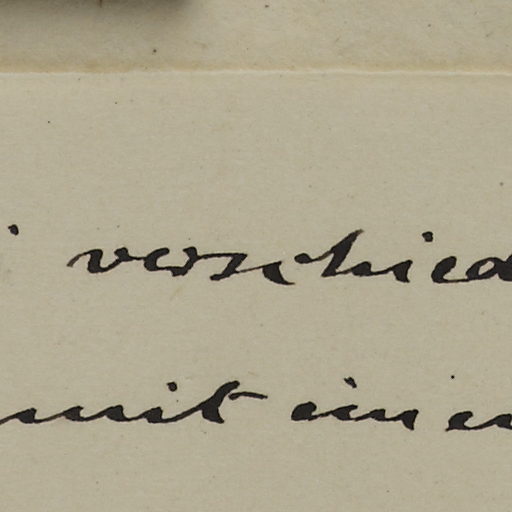 verschied
mit einen